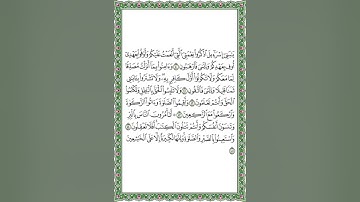 يَٰبَنِىٓ إِسْرَٰٓءِيلَ ٱذْكُرُوا۟ نِعْمَتِىَ ٱلَّتِىٓ أَنْعَمْتُ عَلَيْكُمْ وَأَوْفُوا۟ بِعَهْدِىٓ
أُوفِ بِعَهْدِكُمْ وَإِيَّٰىَ فَٱرْهَبُونِ وَءَامِنُوا۟ بِمَآ أَنزَلْتُ مُصَدِّقًا
لِّمَا مَعَكُمْ وَلَا تَكُونُوٓا۟ أَوَّلَ كَافِرٍۭ بِهِۦ وَلَا تَشْتَرُوا۟ بِـَٔايَٰتِى
ثَمَنًا قَلِيلًا وَإِيَّٰىَ فَٱتَّقُونِ وَلَا تَلْبِسُوا۟ ٱلْحَقَّ بِٱلْبَٰطِلِ وَتَكْتُمُوا۟
ٱلْحَقَّ وَأَنتُمْ تَعْلَمُونَ وَأَقِيمُوا۟ ٱلصَّلَوٰةَ وَءَاتُوا۟ ٱلزَّكَوٰةَ
وَٱرْكَعُوا۟ مَعَ ٱلرَّٰكِعِينَ أَتَأْمُرُونَ ٱلنَّاسَ بِٱلْبِرِّ
وَتَنسَوْنَ أَنفُسَكُمْ وَأَنتُمْ تَتْلُونَ ٱلْكِتَٰبَ أَفَلَا تَعْقِلُونَ
وَٱسْتَعِينُوا۟ بِٱلصَّبْرِ وَٱلصَّلَوٰةِ وَإِنَّهَا لَكَبِيرَةٌ إِلَّا عَلَى ٱلْخَٰشِعِينَ